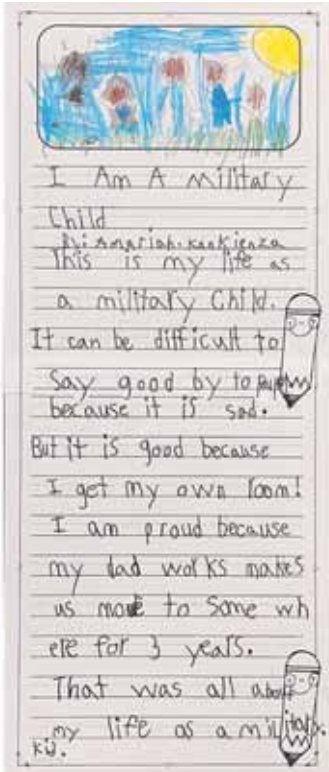 I Am A military
Child
By: Amariah. Kankienza
This is my life as
a military Child.
It can be difficult to
Say good by to
because it is sad.
But it is good because
I get my own room!
I am proud because
my dad works makes
us move to some wh
ere for 3 years.
That was all about
my life as a military.
kid.